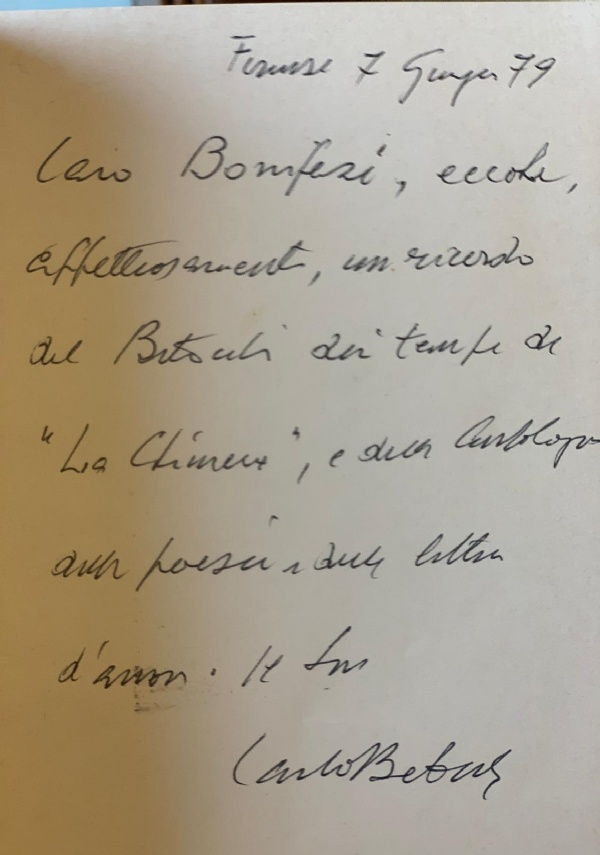 Firenze 7 Giugno 79
Caro Bonifazi, eccole,
affettuosamente, un ricordo
del Betocchi dei tempi de
"La Chimera", e della
della poesia e delle lettere
d'amore. Il Suo
Carlo Betocchi